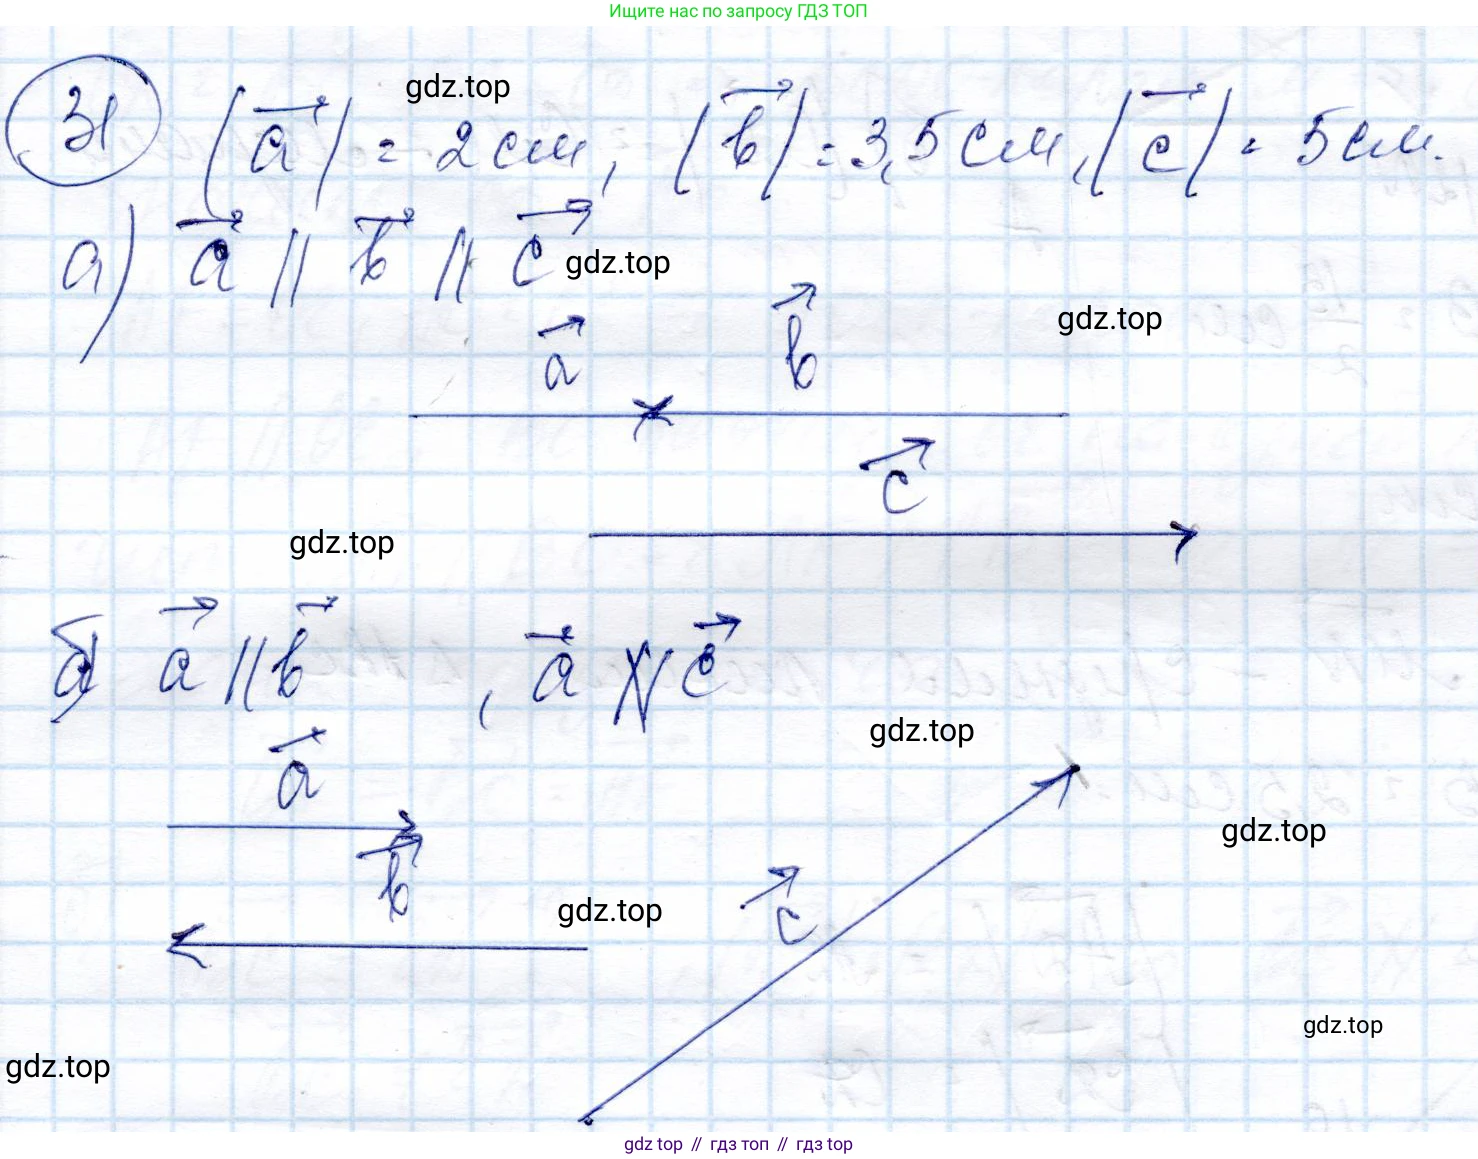 Ищите нас по запросу ГДЗ ТОП
31 |a⃗| = 2 см, |b⃗| = 3,5 см, |c⃗| = 5 см.
gdz.top
а) a⃗ || b⃗ || c⃗
gdz.top
gdz.top
a⃗ b⃗
c⃗
gdz.top
б) a⃗ || b⃗, a⃗ ∦ c⃗
gdz.top
a⃗
gdz.top
b⃗
gdz.top
c⃗
gdz.top
gdz.top
gdz.top // гдз топ // гдз top